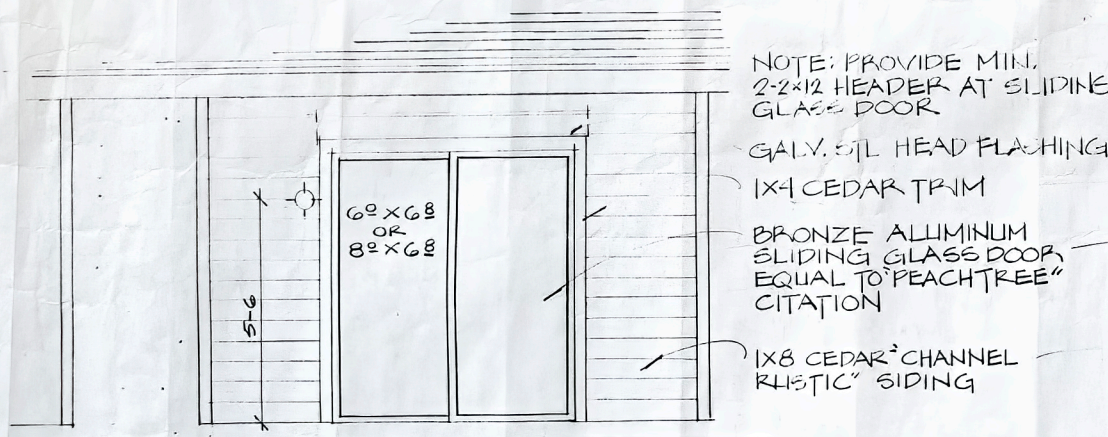 NOTE: PROVIDE MIN.
2-2x12 HEADER AT SLIDING
GLASS DOOR
GALV. STL HEAD FLASHING
1X4 CEDAR TRIM
BRONZE ALUMINUM
SLIDING GLASS DOOR
EQUAL TO "PEACHTREE"
CITATION
1X8 CEDAR "CHANNEL
RUSTIC" SIDING
6⁰ X 6⁸
OR
8⁰ X 6⁸
5-6